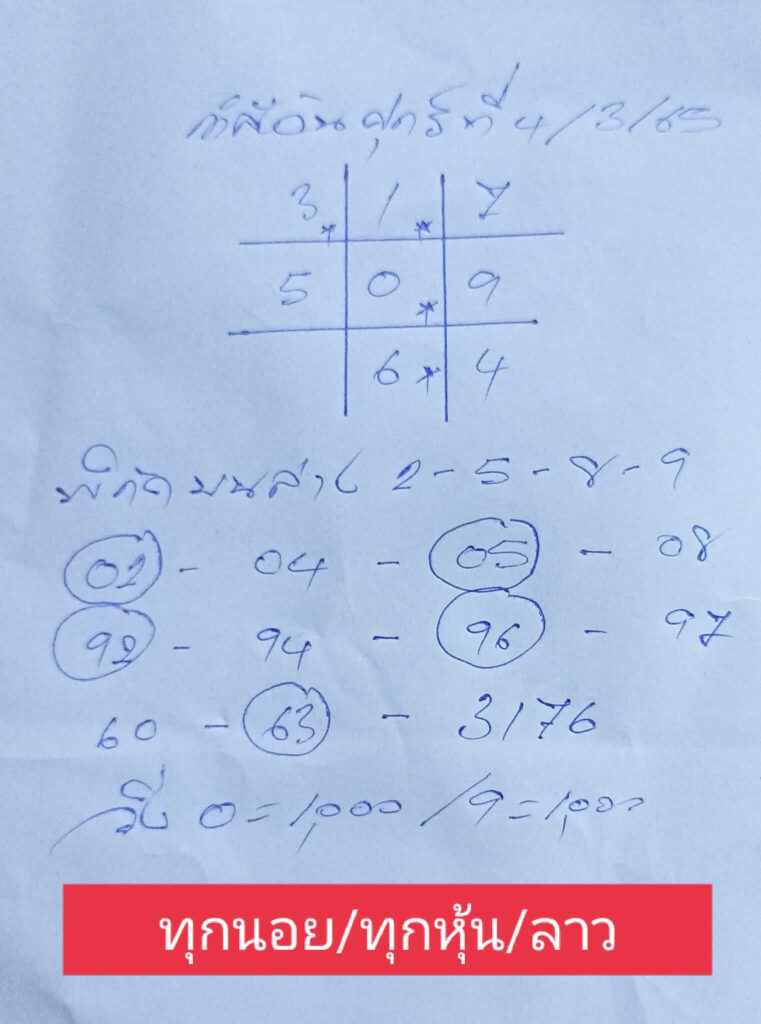 วันศุกร์ที่ 4/3/65
3 * 1 * 7
5 0 * 9
6 * 4
พิกัด บนล่าง 2-5-8-9
02 - 04 - 05 - 08
92 - 94 - 96 - 97
60 - 63 - 3176
วิ่ง 0=1,000/9=1,000
ทุกนอย/ทุกหุ้น/ลาว